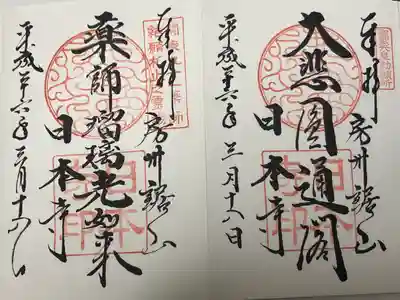 奉拝 房州鋸山
大悲圓通閣
日本寺
平成廿六年三月十八日
奉拝 房州鋸山
薬師瑠璃光如来
日本寺
平成廿六年三月十八日